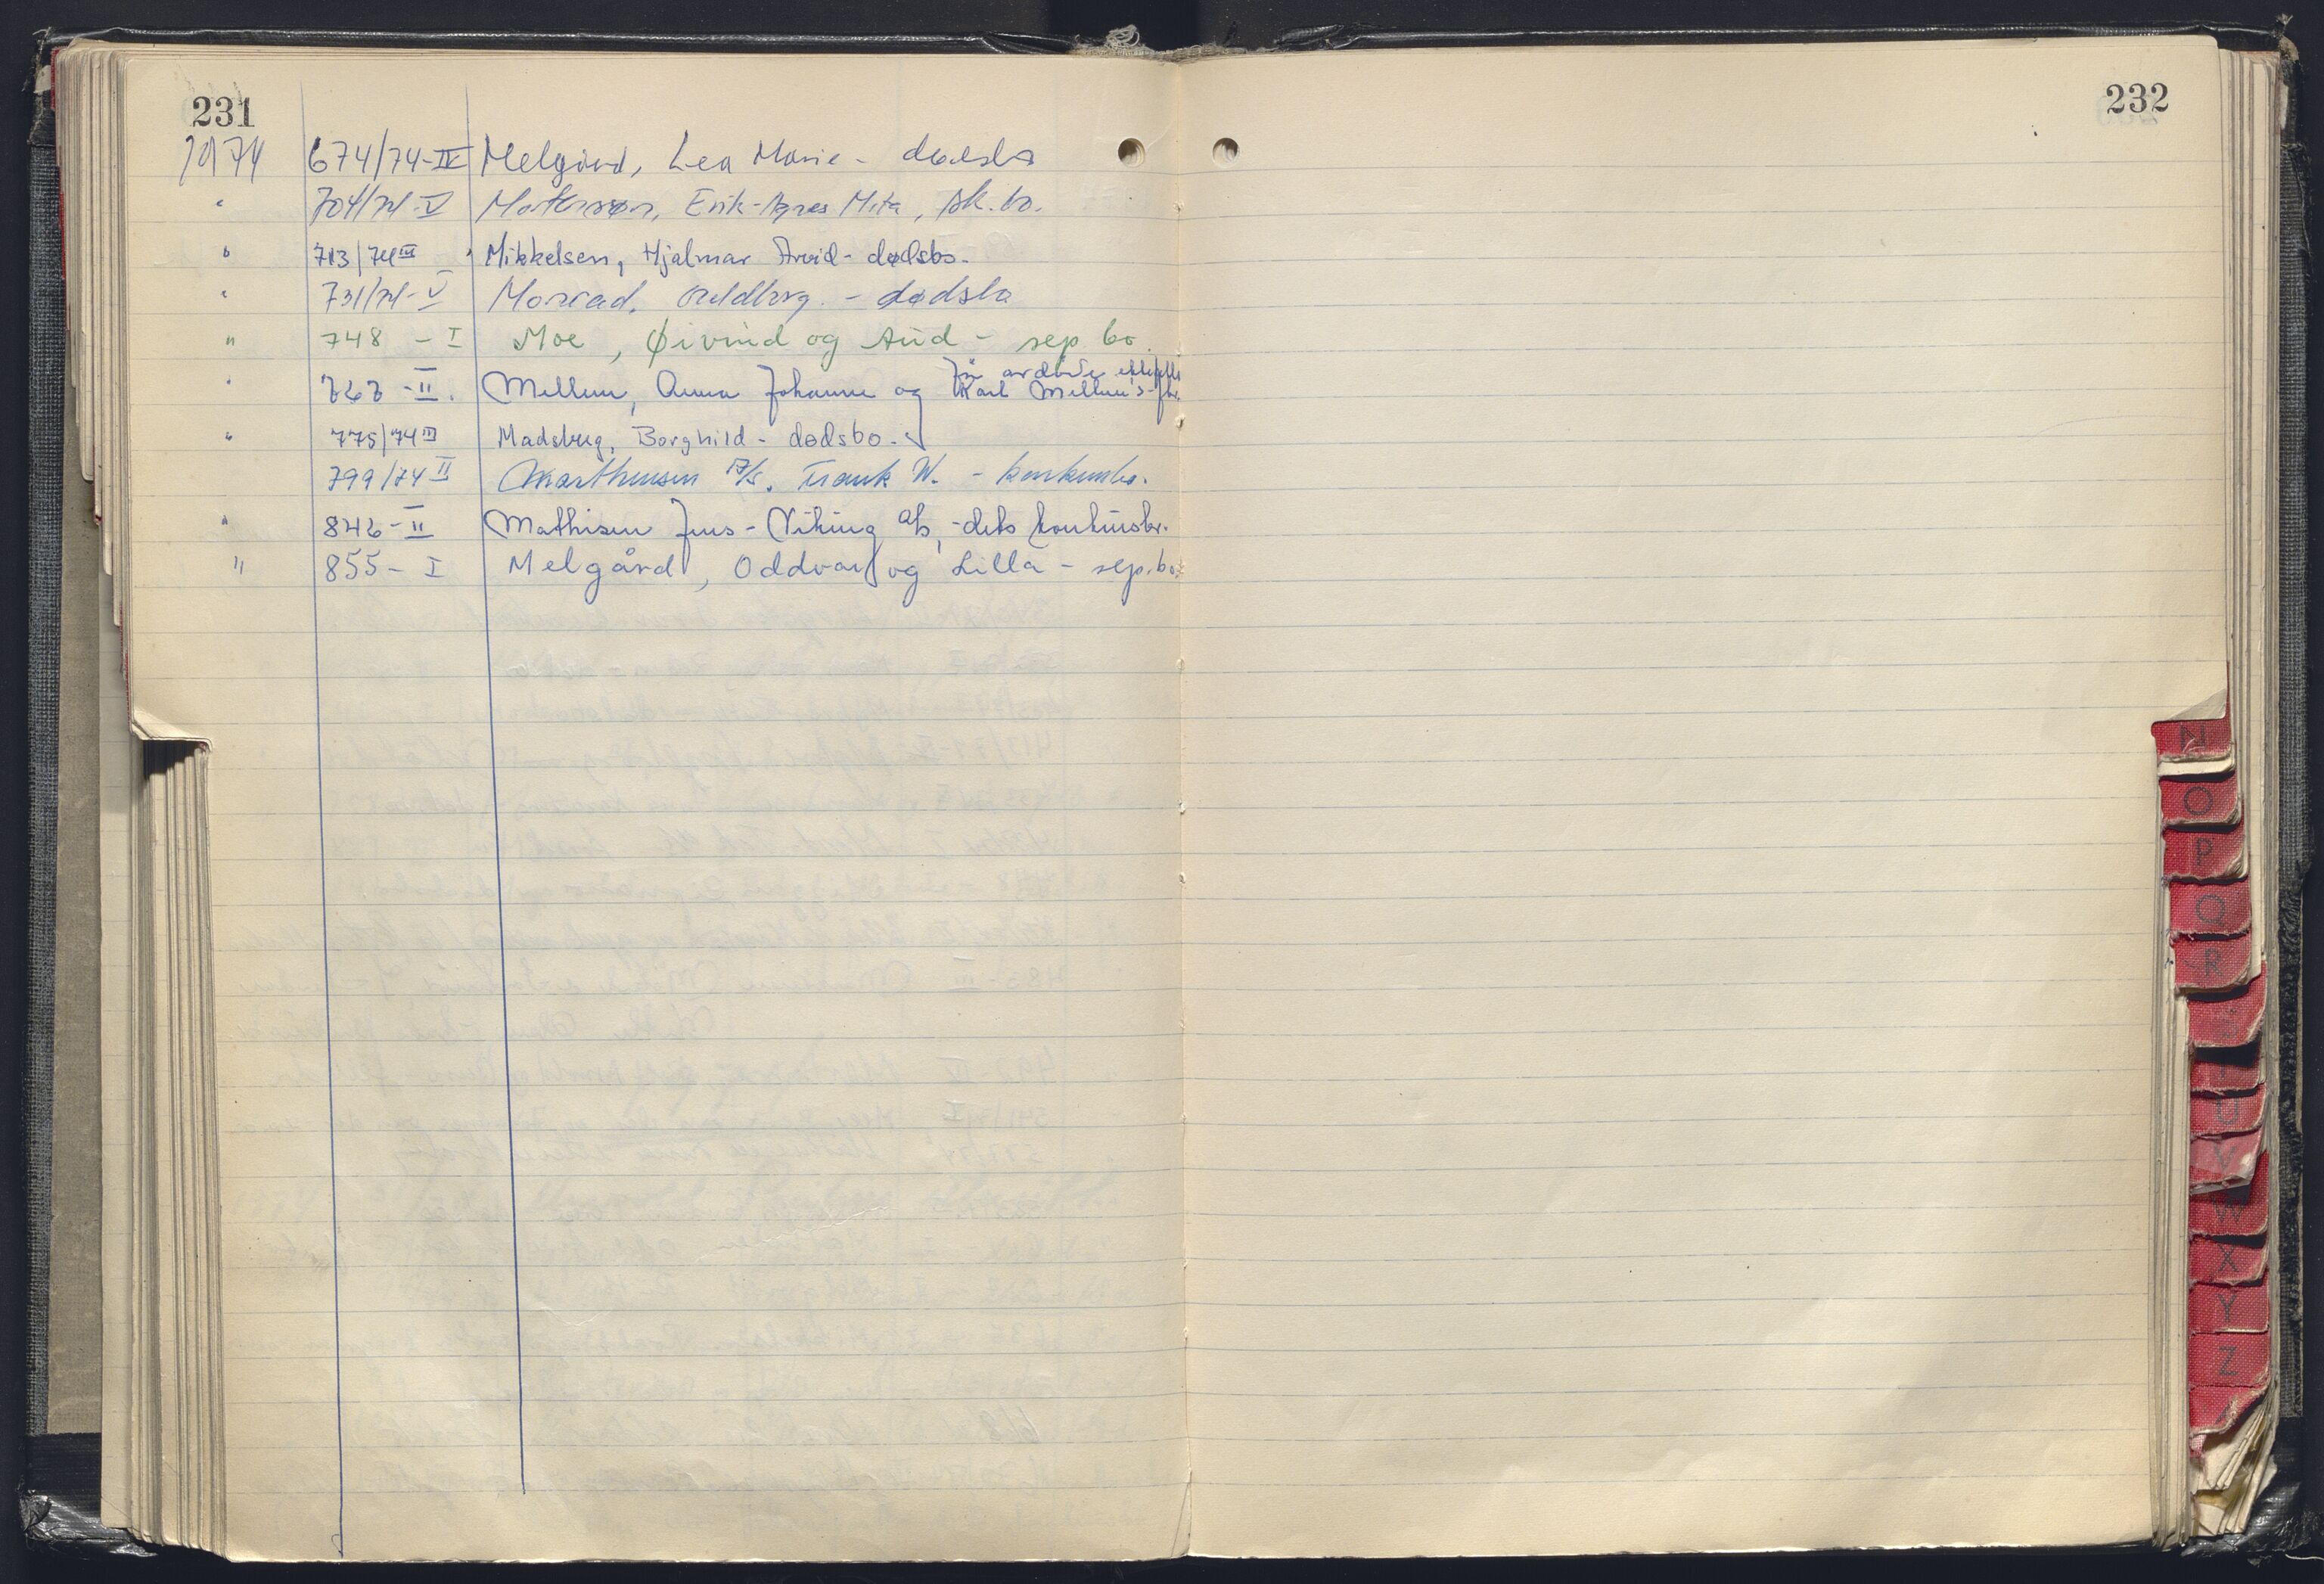 231
232
1974 674/74-IV Melgård, Lea Marie - dødsbo
" 704/74-V Mortensen, Erik - Agnes Mita, sk.bo.
" 713/74 III Mikkelsen, Hjalmar Arvid - dødsbo.
" 731/74-V Monrad, - dødsbo
" 748 - I Moe, Øivind og Aud - sep bo.
før avdøde
" 767 - II. Mellum, Anna Johanne og Karl Mellum's
" 775/74 III Madsberg, Borghild - dødsbo.
799/74 II Marthinsen A/S. Frank W. - konkursbo.
" 846 - II Mathisen Jens - Viking A/s, - dets konkursbo.
" 855 - I Melgård, Oddvar og Lilla - sep.bo.
N
O
P
Q
R
U
V
W
X
Y
Z